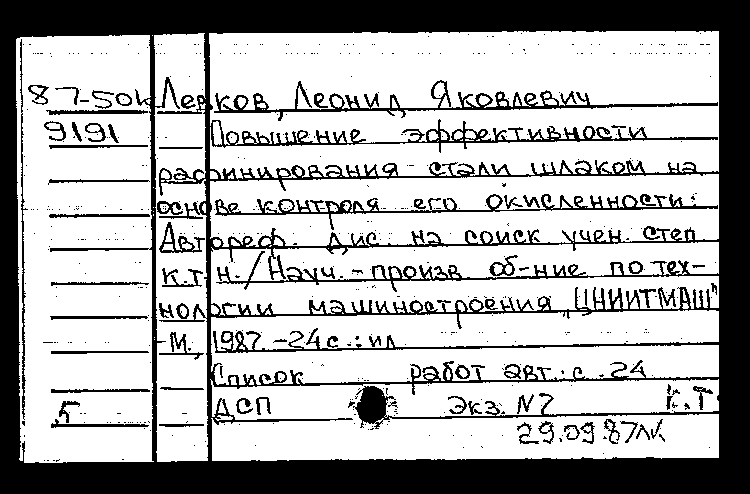 87-50к Левков, Леонид Яковлевич
9191 Повышение эффективности
рафинирования стали шлаком на
основе контроля его окисленности:
Автореф. дис. на соиск учен. степ
к.т.н./Науч.-произв. об-ние по тех-
нологии машиностроения „ЦНИИТМАШ"
-М., 1987 -24с.:ил
Список работ авт.: с. 24
5 ДСП Экз. N7 К.Т
29.09.87ЛК